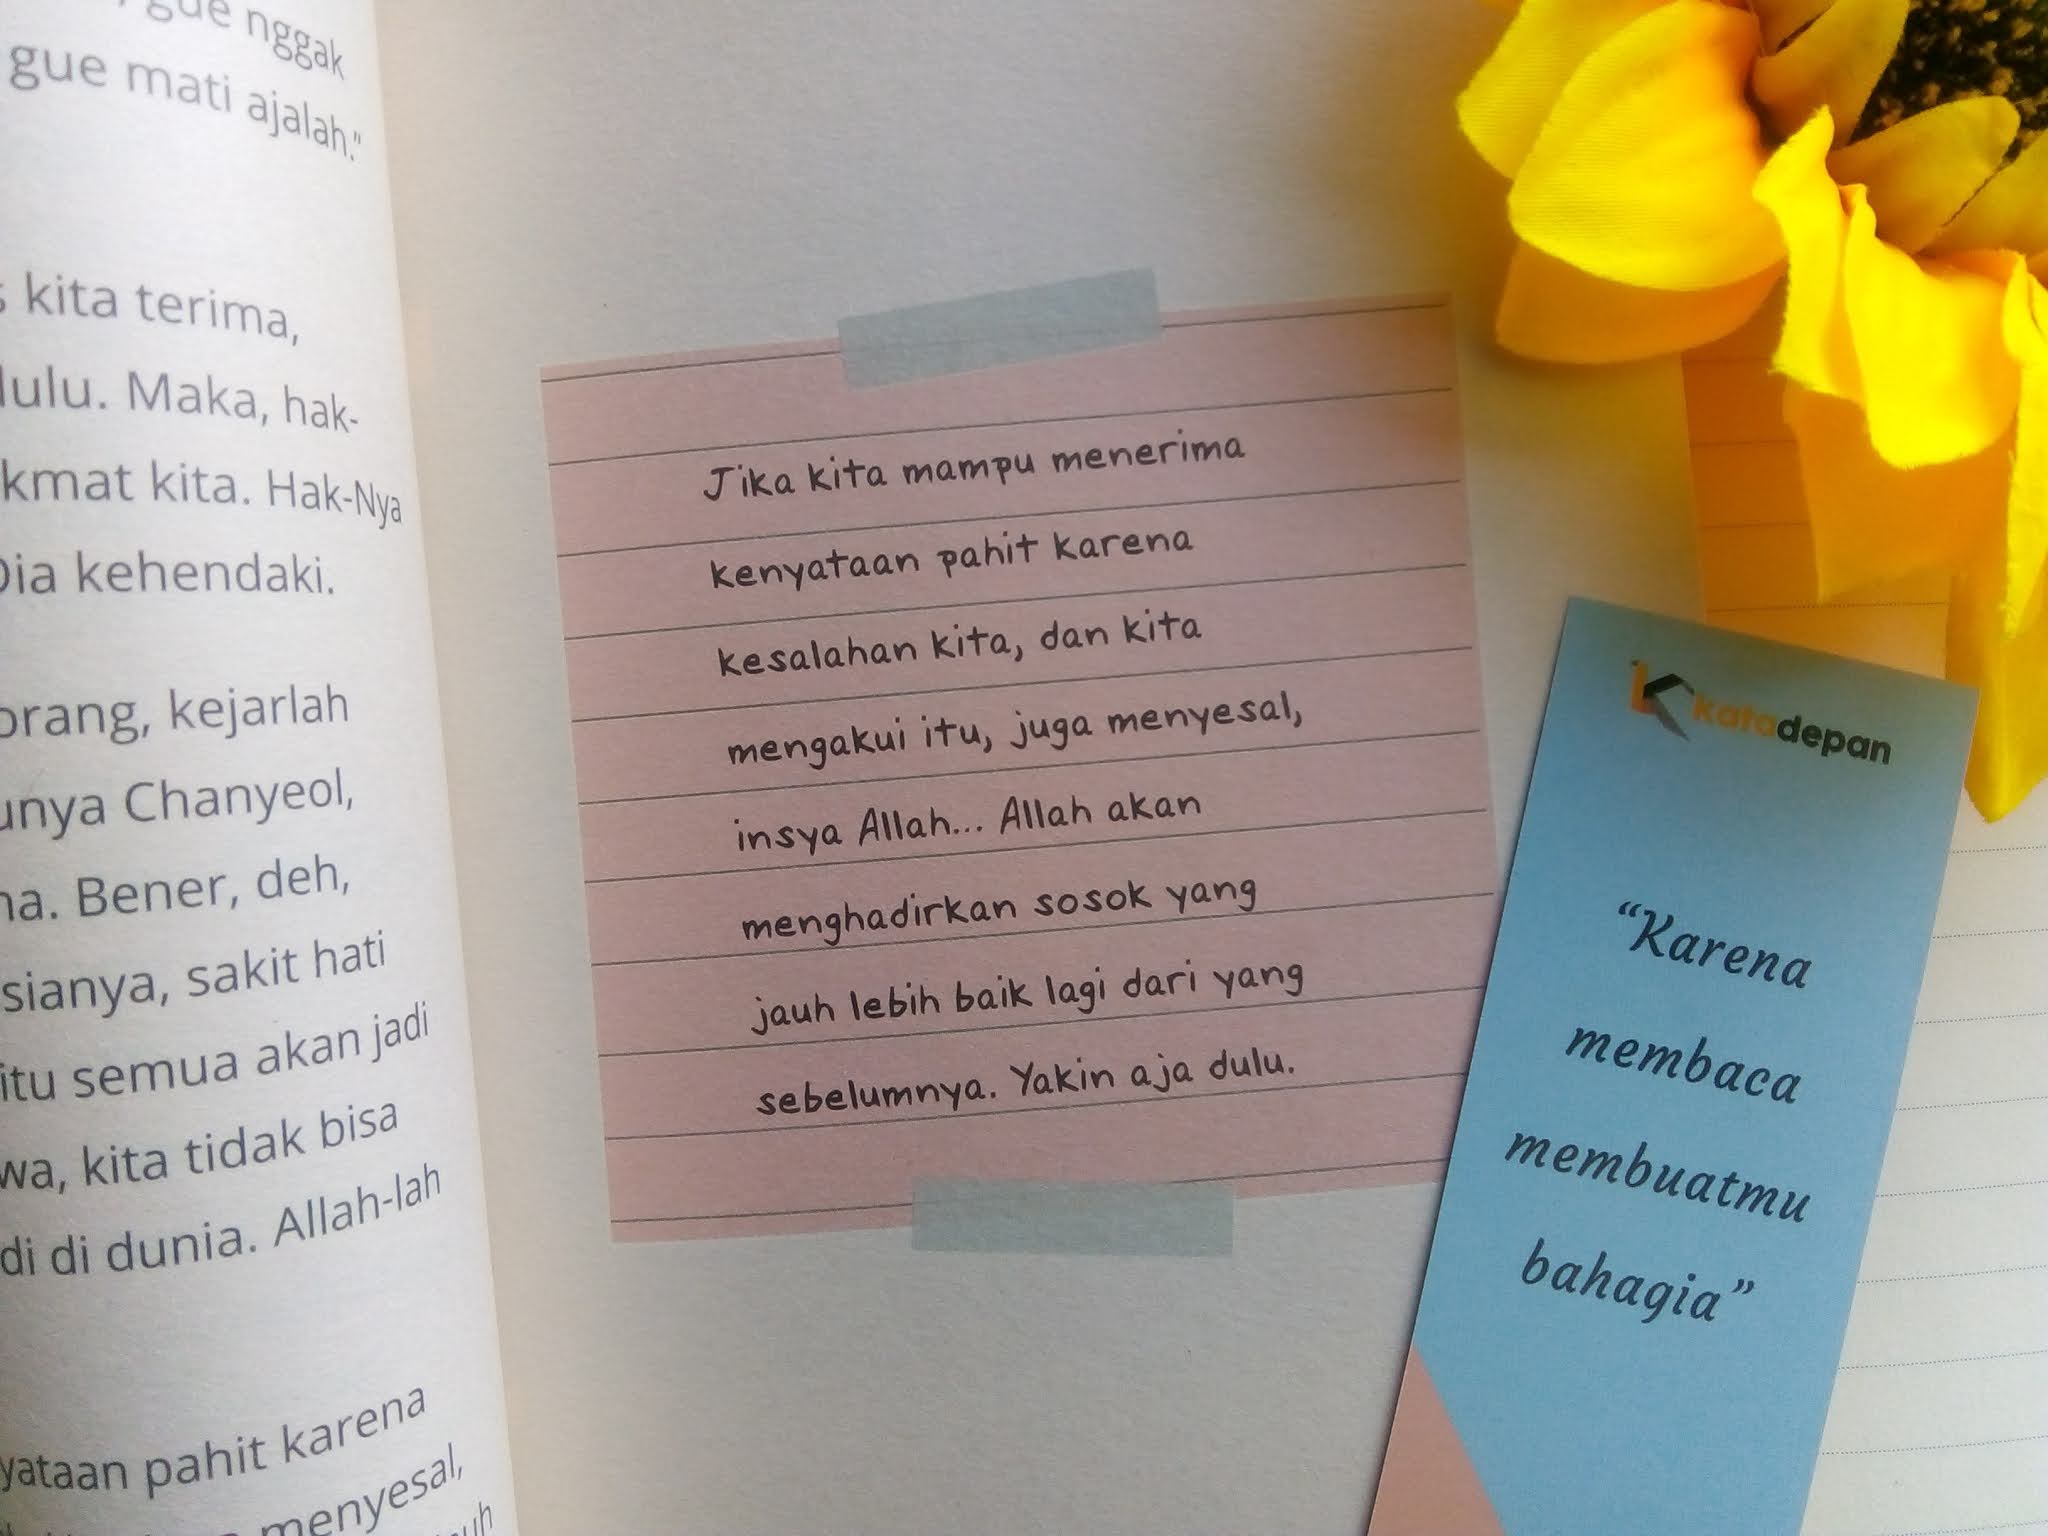 gue nggak
gue mati ajalah."
kita terima,
Maka, hak-
kita. Hak-Nya
Dia kehendaki.
kejarlah
Chanyeol,
Bener, deh,
sakit hati
itu semua akan jadi
kita tidak bisa
di dunia. Allah-lah
pahit karena
menyesal,
Jika kita mampu menerima
kenyataan pahit karena
kesalahan kita, dan kita
mengakui itu, juga menyesal,
insya Allah... Allah akan
menghadirkan sosok yang
jauh lebih baik lagi dari yang
sebelumnya. Yakin aja dulu.
katadepan
"Karena
membaca
membuatmu
bahagia"